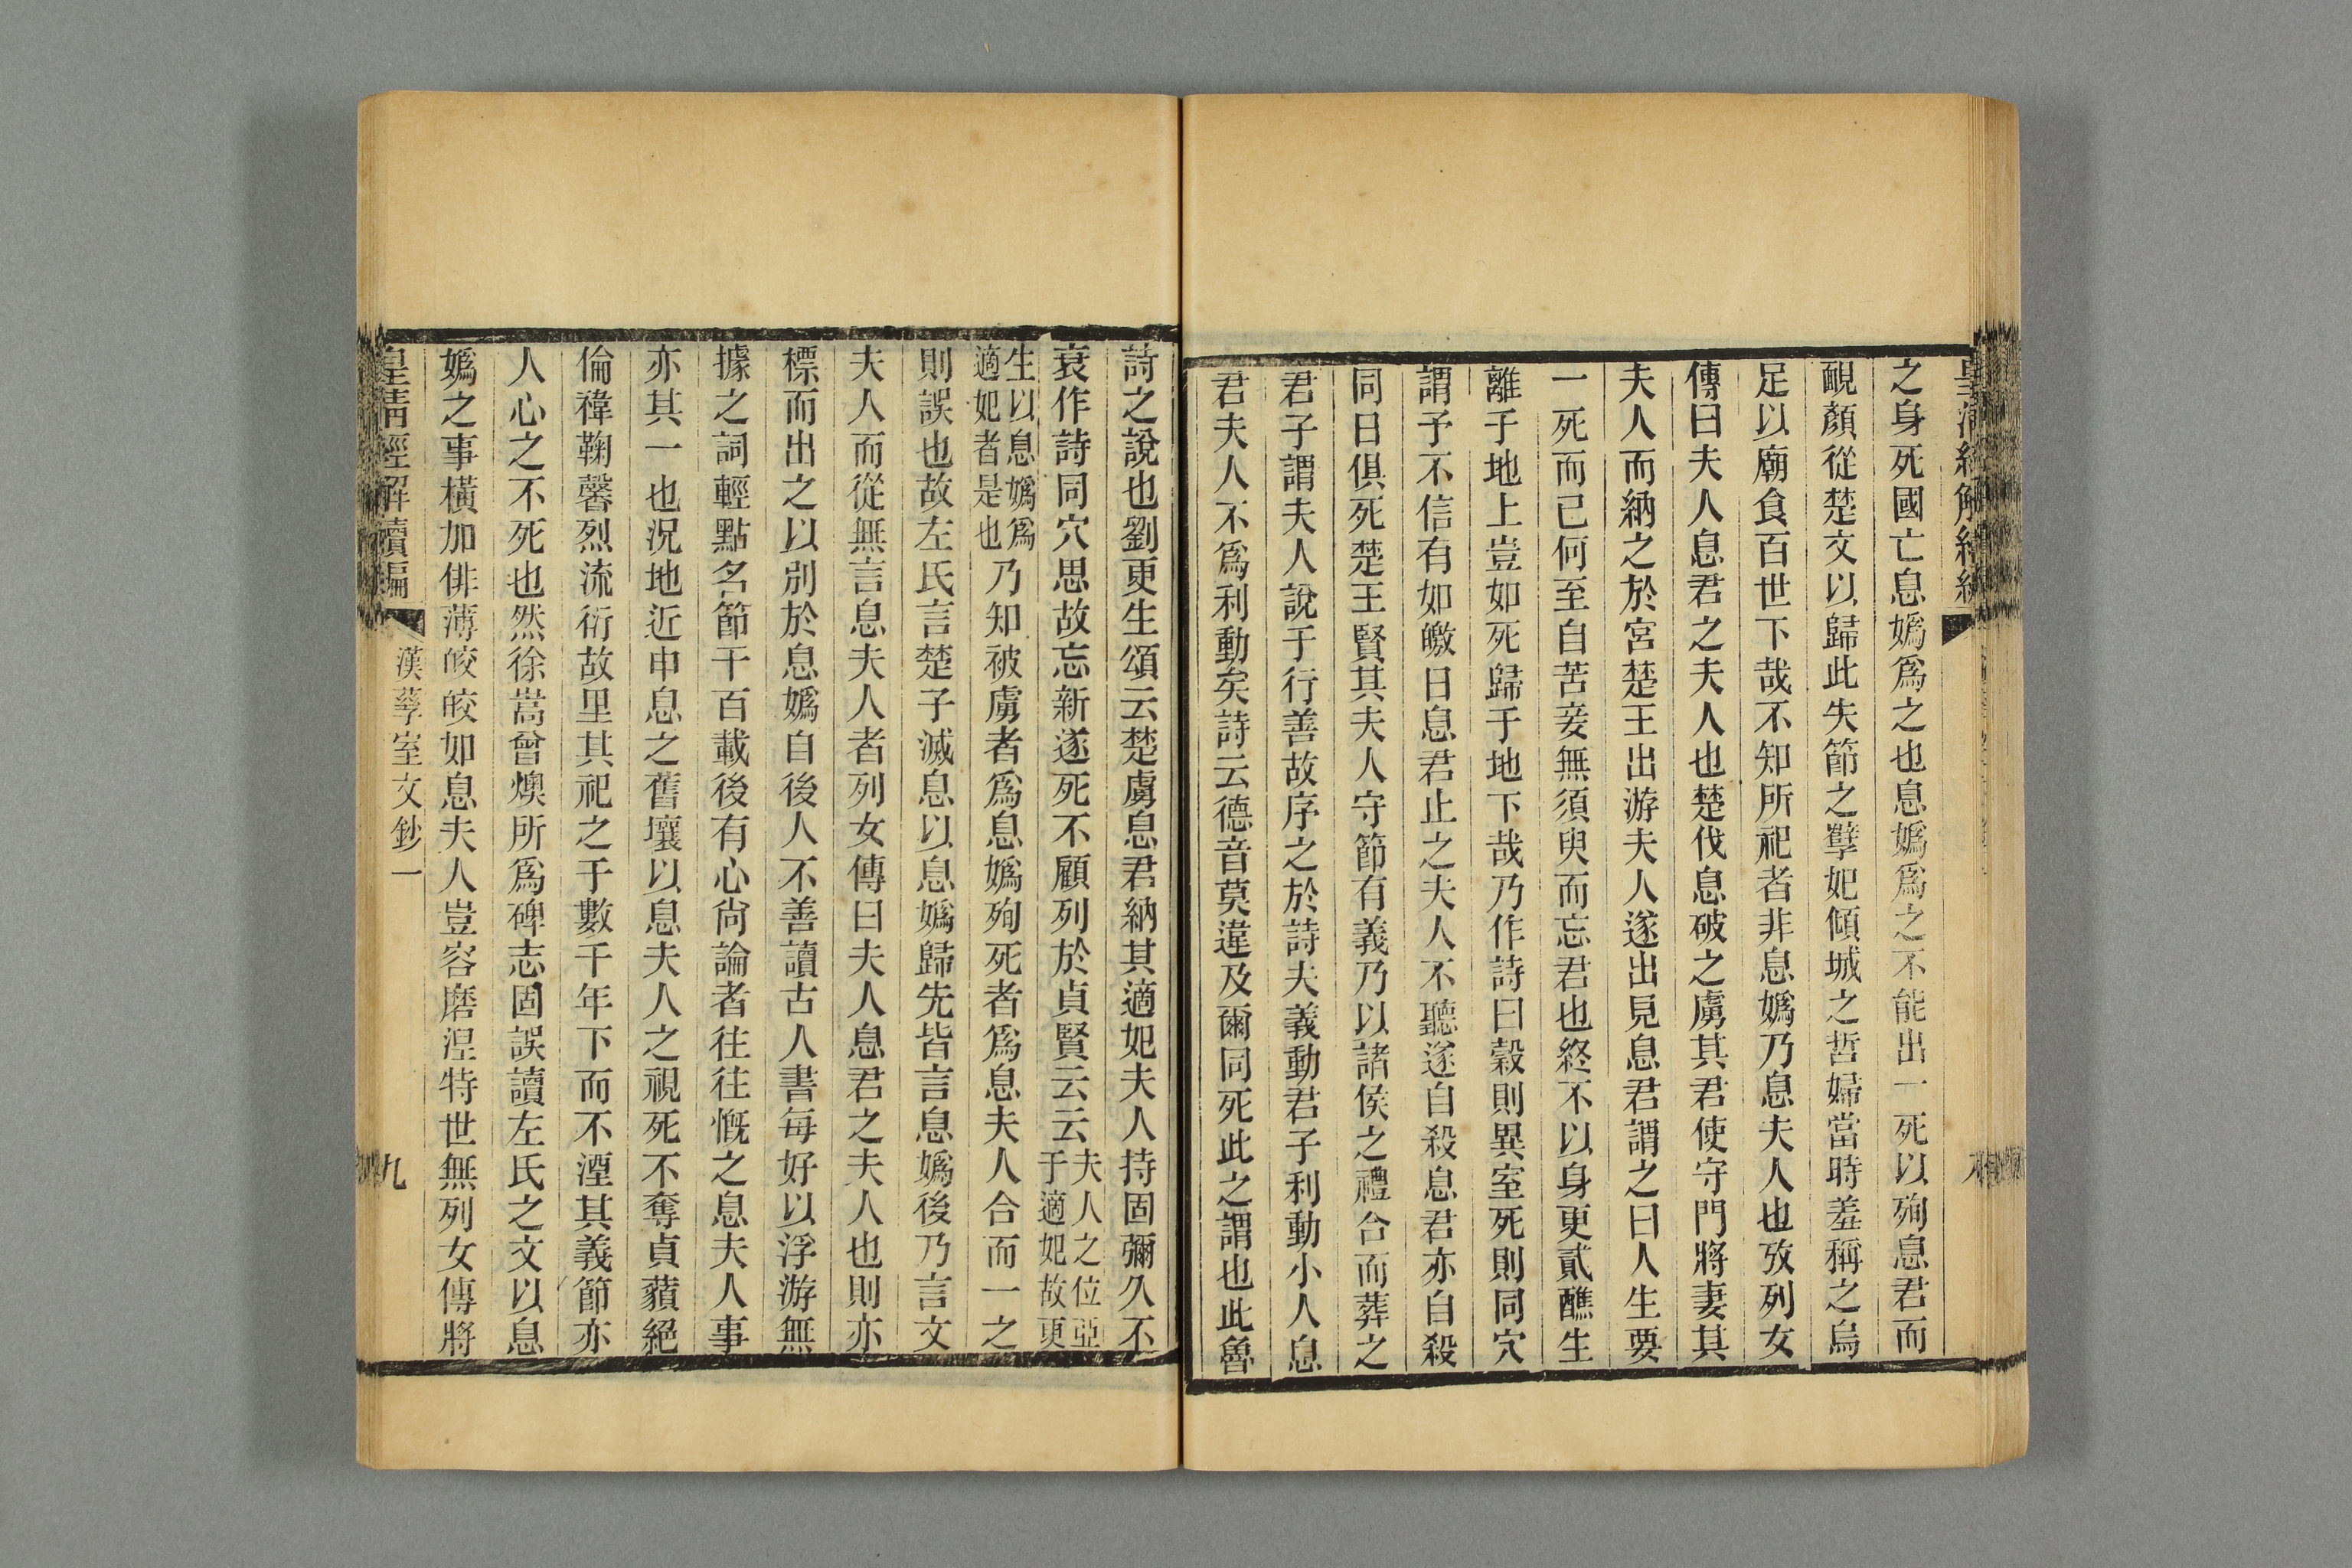 之身死國亡息嬀爲之也息嬀爲之不能出一死以殉息君而
靦顏從楚文以歸此失節之孽妃傾城之哲婦當時羞稱之烏
足以廟食百世下哉不知所祀者非息嬀乃息夫人也攷列女
傳曰夫人息君之夫人也楚伐息破之虜其君使守門將妻其
夫人而納之於宮楚王出游夫人遂出見息君謂之曰人生要
一死而已何至自苦妾無須臾而忘君也終不以身更貳醮生
離于地上豈如死歸于地下哉乃作詩曰榖則異室死則同穴
謂予不信有如皦日息君止之夫人不聽遂自殺息君亦自殺
同日俱死楚王賢其夫人守節有義乃以諸侯之禮合而葬之
君子謂夫人說于行善故序之於詩夫義動君子利動小人息
君夫人不爲利動矣詩云德音莫違及爾同死此之謂也此魯
詩之說也劉更生頌云楚虜息君納其適妃夫人持固彌久不
衰作詩同穴思故忘新遂死不顧列於貞賢云云夫人之位亞于適妃故更
生以息嬀爲適妃者是也乃知被虜者爲息嬀殉死者爲息夫人合而一之
則誤也故左氏言楚子滅息以息嬀歸先皆言息嬀後乃言文
夫人而從無言息夫人者列女傳曰夫人息君之夫人也則亦
標而出之以別於息嬀自後人不善讀古人書每好以浮游無
據之詞輕點名節千百載後有心尙論者往往慨之息夫人事
亦其一也況地近申息之舊壤以息夫人之視死不奪貞蘋絕
倫禕鞠馨烈流衍故里其祀之于數千年下而不湮其義節亦
人心之不死也然徐嵩曾燠所爲碑志固誤讀左氏之文以息
嬀之事橫加俳薄皎皎如息夫人豈容磨涅特世無列女傳將
皇清經解續編
漢孳室文鈔一
九